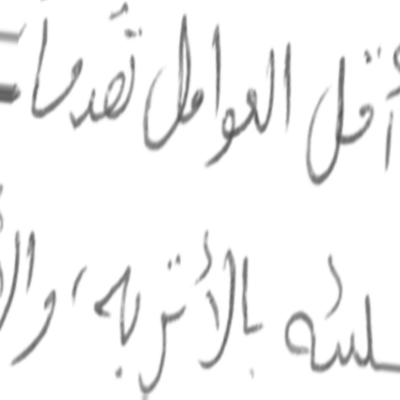 أقل العوامل تقدما
بالأتربة، والأ